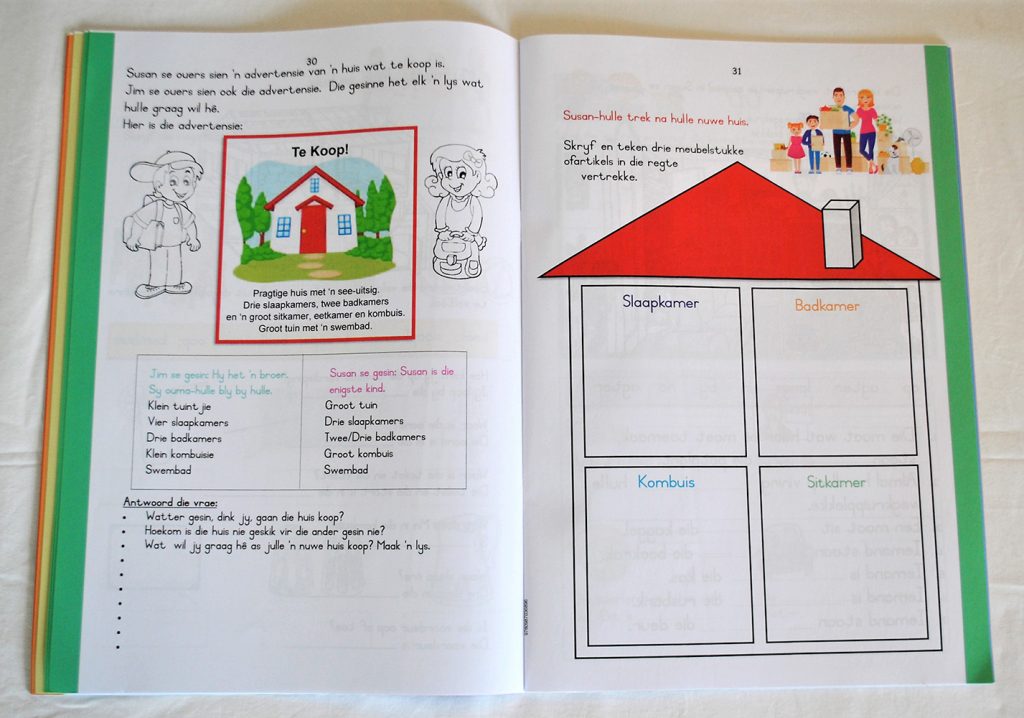 30
Susan se ouers sien 'n advertensie van 'n huis wat te koop is.
Jim se ouers sien ook die advertensie. Die gesinne het elk 'n lys wat
hulle graag wil hê.
Hier is die advertensie:
Te Koop!
Pragtige huis met 'n see-uitsig.
Drie slaapkamers, twee badkamers
en 'n groot sitkamer, eetkamer en kombuis.
Groot tuin met 'n swembad.
Jim se gesin: Hy het 'n broer.
Sy ouma-hulle bly by hulle.
Klein tuintjie
Vier slaapkamers
Drie badkamers
Klein kombuisie
Swembad
Susan se gesin: Susan is die
enigste kind.
Groot tuin
Drie slaapkamers
Twee/Drie badkamers
Groot kombuis
Swembad
Antwoord die vrae:
• Watter gesin, dink jy, gaan die huis koop?
• Hoekom is die huis nie geskik vir die ander gesin nie?
• Wat wil jy graag hê as julle 'n nuwe huis koop? Maak 'n lys.
31
Susan-hulle trek na hulle nuwe huis.
Skryf en teken drie meubelstukke
ofartikels in die regte
vertrekke.
Slaapkamer
Badkamer
Kombuis
Sitkamer